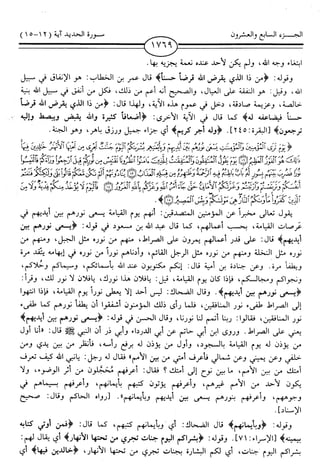 الجزء السابع والعشرون
سورة الحديد آية (١٢-١٥)
١٧٦٩
ابتغاء وجه الله، ولم يكن لأحد عنده نعمة يجزيه بها.
وقوله: ﴿من ذا الذي يقرض الله قرضاً حسناً﴾ قال عمر بن الخطاب: هو الإنفاق في سبيل
الله، وقيل: هو النفقة على العيال، والصحيح أنه أعم من ذلك، فكل من أنفق في سبيل الله بنية
خالصة، وعزيمة صادقة، دخل في عموم هذه الآية، ولهذا قال: ﴿من ذا الذي يقرض الله قرضاً
حسناً فيضاعفه له﴾ كما قال في الآية الأخرى: ﴿أضعافاً كثيرة والله يقبض ويبسط وإليه
ترجعون﴾ [البقرة: ٢٤٥]. ﴿وله أجر كريم﴾ أي جزاء جميل ورزق باهر، وهو الجنة.
يقول تعالى مخبراً عن المؤمنين المتصدقين: أنهم يوم القيامة يسعى نورهم بين أيديهم في
عرصات القيامة، بحسب أعمالهم، كما قال عبد الله بن مسعود في قوله: ﴿يسعى نورهم بين
أيديهم﴾ قال: على قدر أعمالهم يمرون على الصراط، منهم من نوره مثل الجبل، ومنهم من
نوره مثل النخلة ومنهم من نوره مثل الرجل القائم، وأدناهم نوراً من نوره في إبهامه يتّقد مرة
ويطفأ مرة. وعن جنادة بن أمية قال: إنكم مكتوبون عند الله بأسمائكم، وسيماكم وحُلاكم،
ونجواكم ومجالسكم، فإذا كان يوم القيامة، قيل: يافلان هذا نورك، يافلان لا نور لك، وقرأ:
﴿يسعى نورهم بين أيديهم﴾. وقال الضحاك: ليس أحد إلا يعطى نوراً يوم القيامة، فإذا انتهوا
إلى الصراط طفىء نور المنافقين، فلما رأى ذلك المؤمنون أشفقوا أن يطفأ نورهم كما طفىء
نور المنافقين، فقالوا: ربنا أتمم لنا نورنا، وقال الحسن في قوله: ﴿يسعى نورهم بين أيديهم﴾
يعني على الصراط. وروى ابن أبي حاتم عن أبي الدرداء وأبي ذر أن النبي ﷺ قال: «أنا أول
من يؤذن له يوم القيامة بالسجود، وأول من يؤذن له برفع رأسه، فأنظر من بين يدي ومن
خلفي وعن يميني وعن شمالي فأعرف أمتي من بين الأمم» فقال له رجل: يانبي الله كيف تعرف
أمتك من بين الأمم، ما بين نوح إلى أمتك؟ فقال: أعرفهم مُحَجَّلون من أثر الوضوء، ولا
يكون لأحد من الأمم غيرهم، وأعرفهم يؤتون كتبهم بأيمانهم، وأعرفهم بسيماهم في
وجوههم، وأعرفهم بنورهم يسعى بين أيديهم وبأيمانهم». [رواه الحاكم وقال: صحيح
الإسناد].
وقوله: ﴿وبأيمانهم﴾ قال الضحاك: أي وبأيمانهم كتبهم، كما قال: ﴿فمن أوتي كتابه
بيمينه﴾ [الإسراء: ٧١]. وقوله: ﴿بشراكم اليوم جنات تجري من تحتها الأنهار﴾ أي يقال لهم:
بشراكم اليوم جنات، أي لكم البشارة بجنات تجري من تحتها الأنهار، ﴿خالدين فيها﴾ أي